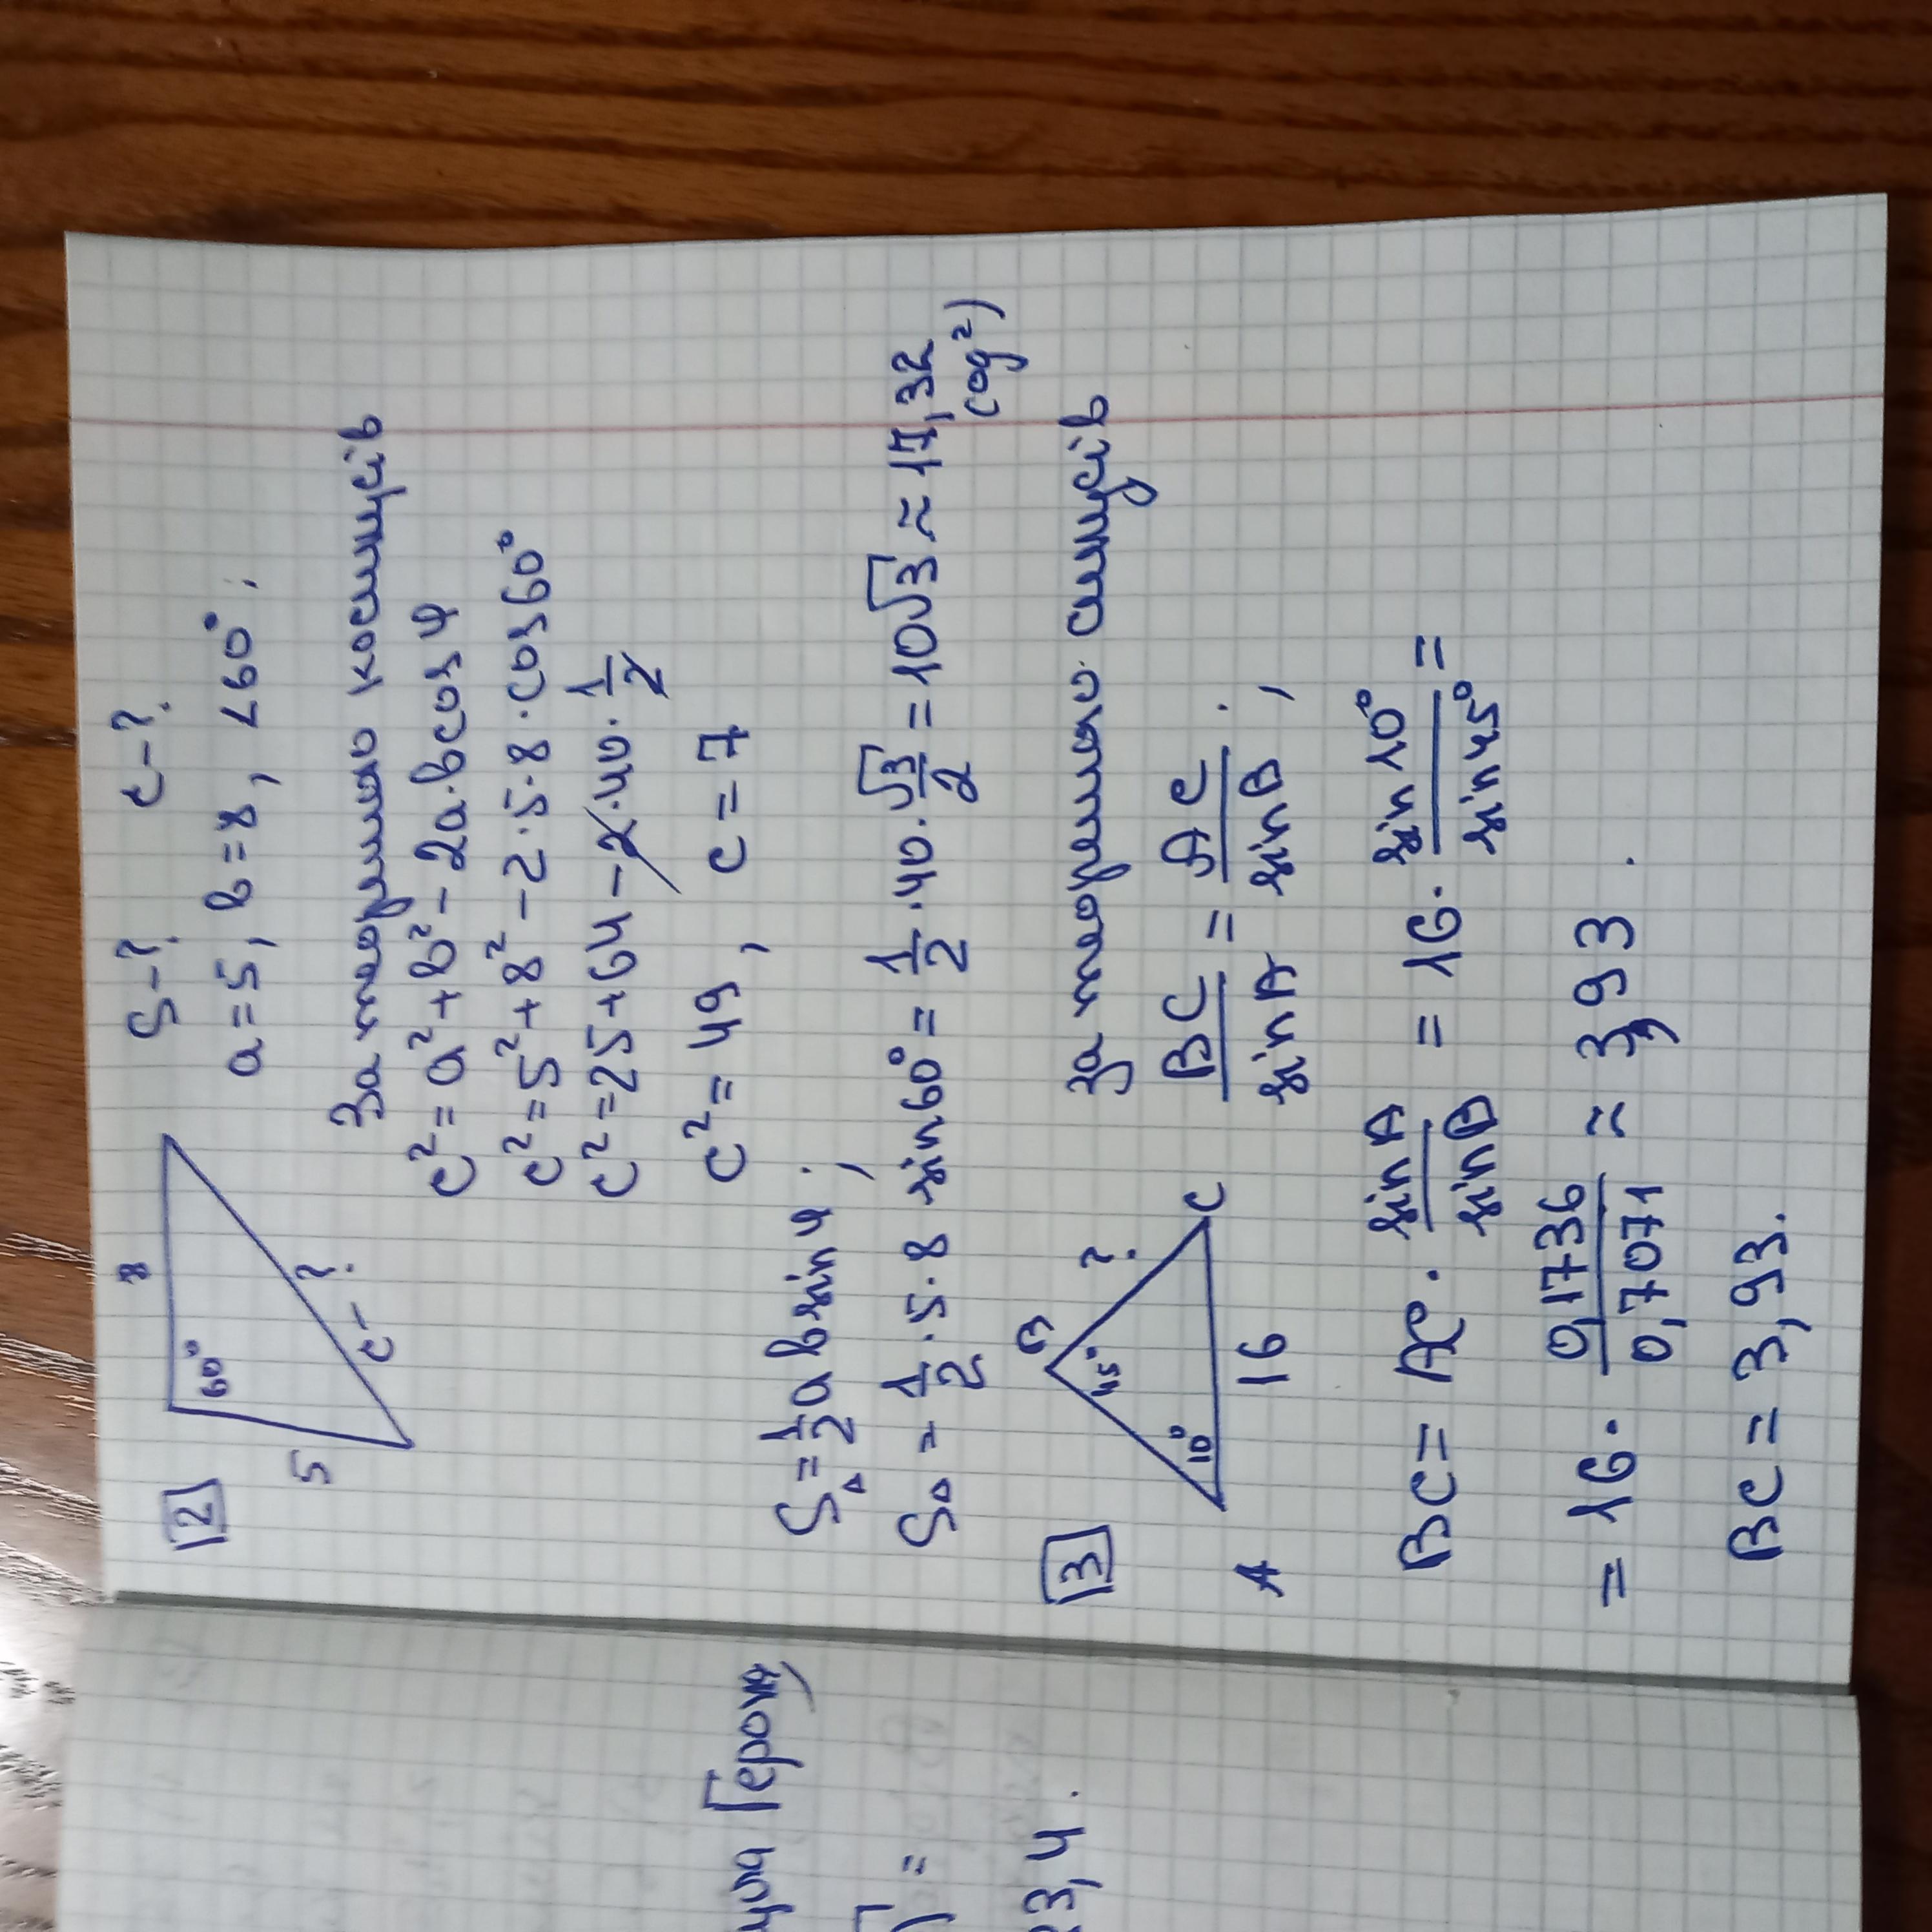 2
8
60°
5
c-?
S-? c-?
a=5, b=8, ∠60°;
За теоремою косинусів
c²=a²+b²-2a·bcosφ
c²=5²+8²-2·5·8·cos60°
c²=25+64-2·40·1/2
c²=49, c=7
S△=1/2 a b sinφ;
S△=1/2·5·8 sin60°=1/2·40·√3/2=10√3≈17,32
(од²)
3
B
45°
?
10°
A
16
C
За теоремою синусів
BC/sinA = AC/sinB;
BC = AC·sinA/sinB = 16·sin10°/sin45° =
= 16·0,1736/0,7071 ≈ 3,93.
BC = 3,93.
Герона
=
3,4.